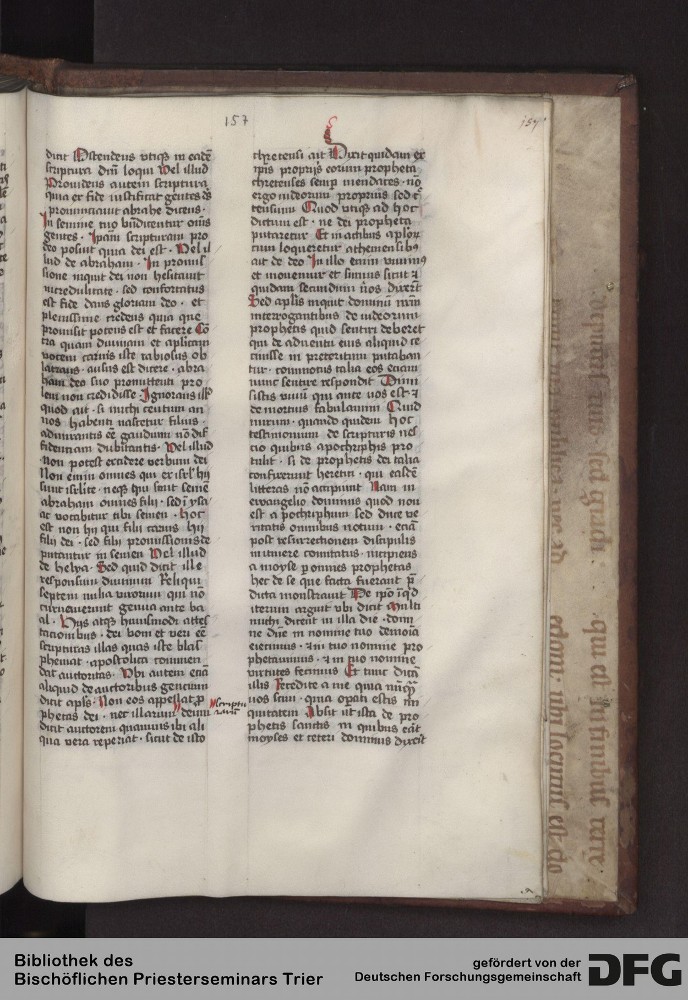 157
157
dicit Ostendens vtiqꝫ in eadē
scriptura dm̄ loqui Vel illud
Prouidens autem scriptura
quia ex fide iustificat gentes dꝰ
pronunciauit abrahe dicens ·
In semine tuo bn̄dicentur om̄s
gentes · Ipam scripturam pro
deo posuit quia dei est · Vel il
lud de abraham · In promis
sione inquit dei non hesitauit
incredulitate · sed confortatus
est fide dans gloriam deo · et
plenissime credens quia que
promisit potens est et facere Cō
tra quam diuinam et aplicam
vocem carnis iste rabiosus ob
latrans · ausus est dicere · abra
ham deo suo promittenti pro
lem non credidisse · Ignorans illd̄
quod ait · si michi centum an
nos habenti nascetur filius ·
admirantis eē gaudium nō dif
fidentiam dubitantis · Vel illud
Non potest excidere verbum dei
Non enim omnes qui ex isrl' hij
sunt isrlite · neqꝫ qui sunt semē
abraham omnes filij · sed ī ysa
ac vocabitur tibi semen · hoc
est non hij qui filij carnis hij
filij dei · sed filij promissionis de
putantur in semen Vel illud
de helya · Sed quid dicit ille
responsum diuinum Reliqui
septem milia virorum qui nō
curuauerunt genua ante ba
al · Hijs atqꝫ huiusmodi attes
tacionibus · dei boni et veri eē
scripturas illas quas iste blas
phemat · apostolica commen
dat auctoritas · Vbi autem eciā
aliquid de auctoribus gencium
dicit apls · Non eos appellat ꝓ
phetas dei · nec illarum deum
scriptu
rarum
dicit auctorem quamuis ibi ali
qua vera reperiat · sicut de isto
chretensi ait Dixit quidam ex
ip̄is proprijs eorum propheta
chretenses semꝑ mendaces · nō
ergo iudeorum proprius sed c̄
tensium Quod vtiqꝫ ad hoc
dictum est · ne dei propheta
putaretur Et in actibus aplorꝫ
cum loqueretur atheniensibꝫ
ait de deo In illo enim viuimꝰ
et mouemur et sumus sicut ⁊
quidam secundum ūos dixert̄
Sed aplis inquit dominū nr̄m
interrogantibus de iudeorum
prophetis quid sentiri deberet
qui de aduentu eius aliquid ce
cinisse in preteritum putaban
tur · commotus talia eos eciam
nunc sentire respondit Dimi
sistis viuū qui ante vos est ⁊
de mortuis fabulamini Quid
mirum · quando quidem hoc
testimonium de scripturis nes
cio quibus apochriphis pro
tulit · si de prophetis dei talia
confinxerunt heretici · qui easdē
litteras nō accipiunt Nam in
ewangelio dominus quod non
est apochriphum sed diuine ve
ritatis omnibus notum · eciā
post resurrectionem discipulis
in itinere comitatus · incipiens
a moyse ꝑ omnes prophetas
hec de se que facta fuerant p̄
dicta monstrauit De ip̄o īqd
iterum arguit vbi dicit Multi
michi dicent in illa die · dom̄
ne dn̄e in nomine tuo demoīa
eiecimus · ⁊ in tuo nomine pro
phetauimus · ⁊ in tuo nomine
virtutes fecimus Et tunc dicā
illis Recedite a me quia nūqꝫ
vos sciui · quia opati estis ini
quitatem Absit vt ista de pro
phetis sanctis in quibus erāt
moyses et ceteri dominus dixerit
Bibliothek des
Bischöflichen Priesterseminars Trier
gefördert von der
Deutschen Forschungsgemeinschaft
DFG